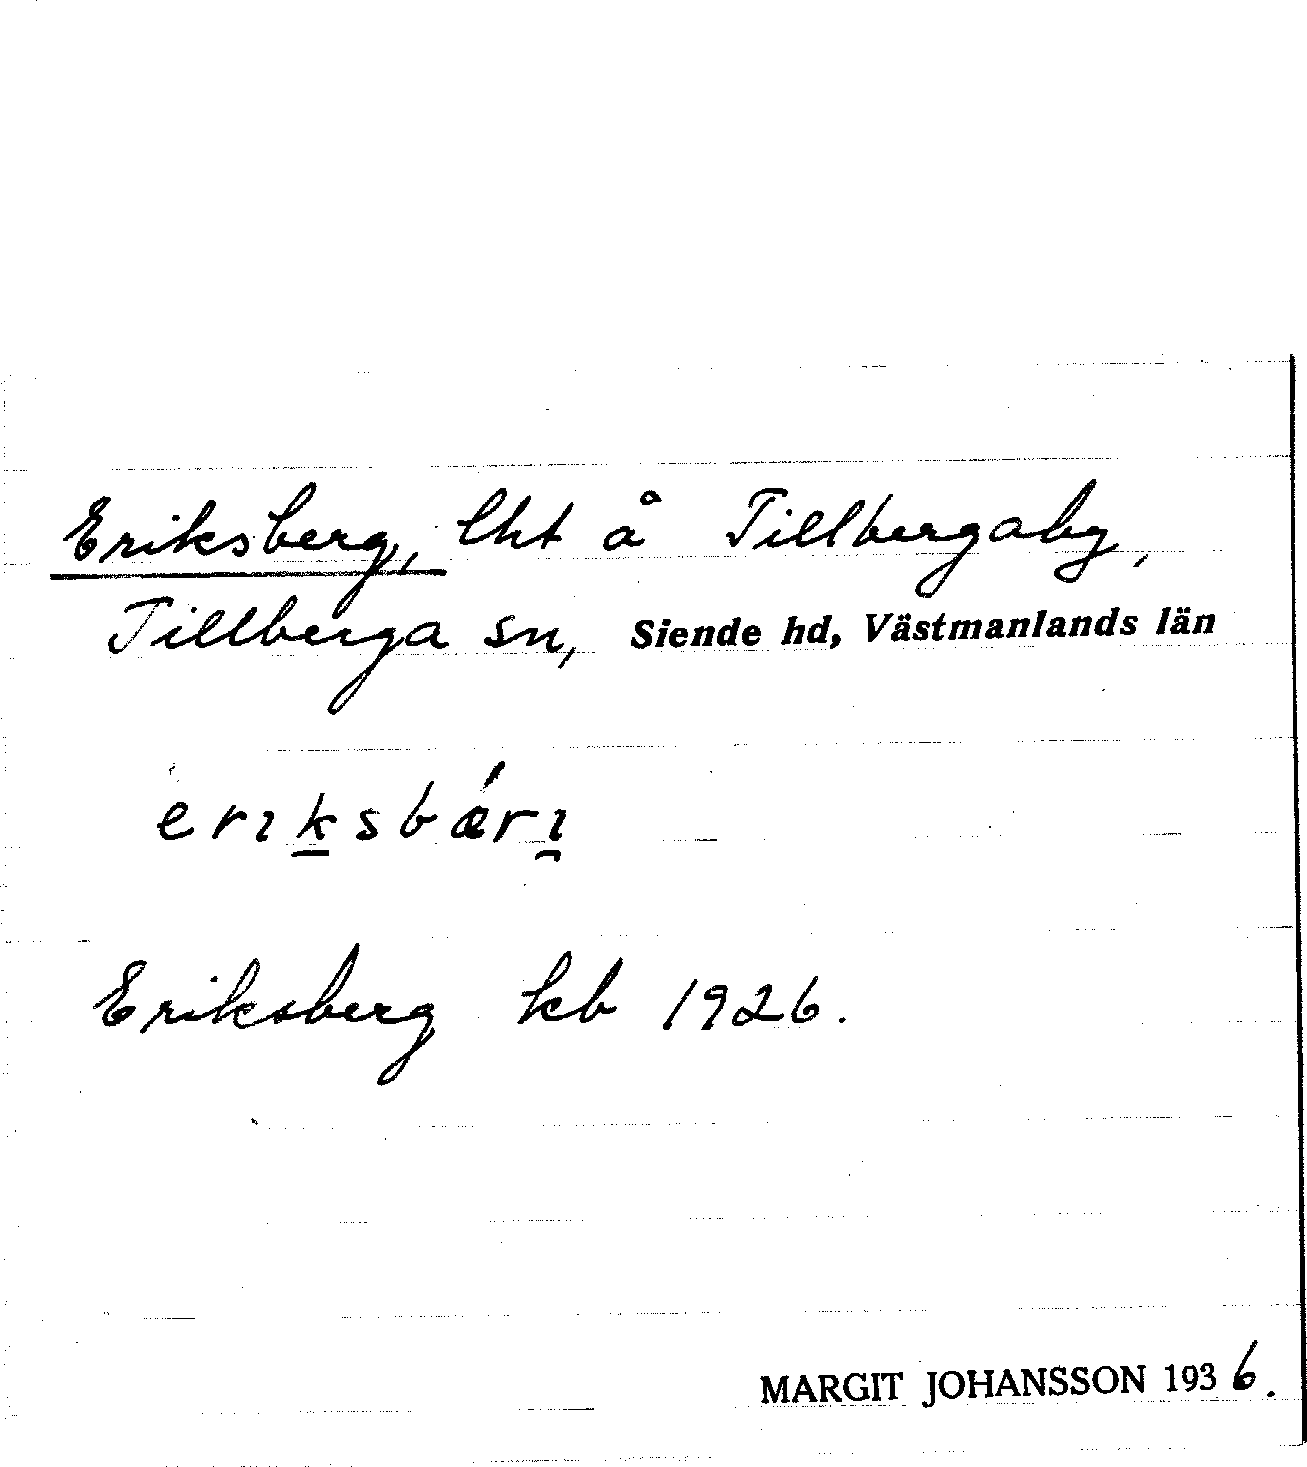 Eriksberg, lht å Tillbergaby,
Tillberga sn, Siende hd, Västmanlands län
erık̲sbǽrı̯
Eriksberg kb 1926.
MARGIT JOHANSSON 1936.